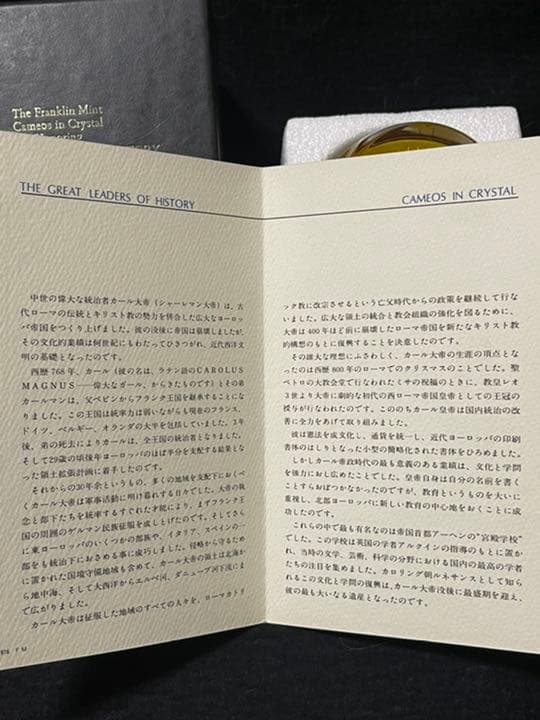 The Franklin Mint
Cameos in Crystal
THE GREAT LEADERS OF HISTORY
中世の偉大な統治者カール大帝（シャーレマン大帝）は、古
代ローマの伝統とキリスト教の勢力を併合した広大なヨーロッ
パ帝国をつくり上げました。彼の没後に帝国は崩壊しましたが、
その文化的業績は何世紀にもわたってひきつがれ、近代西洋文
明の基礎となったのです。
西歴768年、カール（彼の名は、ラテン語のCAROLUS
MAGNUS——偉大なカール、からきたものです）とその弟
カールマンは、父ペピンからフランク王国を継承することにな
りました。この王国は統率力は弱いながらも現在のフランス、
ドイツ、ベルギー、オランダの大半を包括していました。3年
後、弟の死去によりカールは、全王国の統治者となりました。
そして29歳の頃後年ヨーロッパのほぼ半分を支配する結果とな
った領土拡張計画に着手したのです。
それからの30年余というもの、多くの地域を支配下におくべ
くカール大帝は軍事活動に明け暮れする日々でした。大帝の執
念と部下たちを統率するすぐれた才能により、まずフランク王
国の周囲のゲルマン民族征服を成しとげたのです。そしてさら
に東ヨーロッパのいくつかの部族や、イタリア、スペインの一
部をも統治下におさめる事に成功しました。侵略から守るため
に置かれた国境守備地域も含めて、カール大帝の領土は北海か
ら地中海、そして大西洋からエルベ河、ダニューブ河下流にま
で広がりました。
カール大帝は征服した地域のすべての人々を、ローマカトリ
F M
CAMEOS IN CRYSTAL
ック教に改宗させるという亡父時代からの政策を継続して行な
いました。広大な領土の統合と教会組織の強化を図るために、
大帝は400年ほど前に崩壊したローマ帝国を新たなキリスト教
的構想のもとに復興することを決意したのです。
その雄大な理想にふさわしく、カール大帝の生涯の頂点とな
ったのは西歴800年のローマでのクリスマスのことでした。聖
ペトロの大教会堂で行なわれたミサの祝福のときに、教皇レオ
3世より大帝に劇的な初代の西ローマ帝国皇帝としての王冠の
授与が行なわれたのです。こののちカール皇帝は国内統治の改
善に全力をあげて取り組みました。
彼は憲法を成文化し、通貨を統一し、近代ヨーロッパの印刷
書体のはしりとなった小型の簡略化された書体をひろめました。
しかしカール帝政時代の最も意義のある業績は、文化と学問
を強力におし広めたことでした。皇帝自身は自分の名前を書く
ことすらおぼつかなかったのですが、教育というものを大いに
重視し、北部ヨーロッパに新しい教育の中心地をおくことに成
功したのです。
これらの中で最も有名なのは帝国首都アーヘンの“宮殿学校”
でした。この学校は英国の学者アルクインの指導のもとに置か
れ、当時の文学、芸術、科学の分野における国内の最高の学者
たちの注目を集めました。カロリング朝ルネサンスとして知ら
れるこの文化と学問の復興は、カール大帝没後に最盛期を迎え、
彼の最も大いなる遺産となったのです。